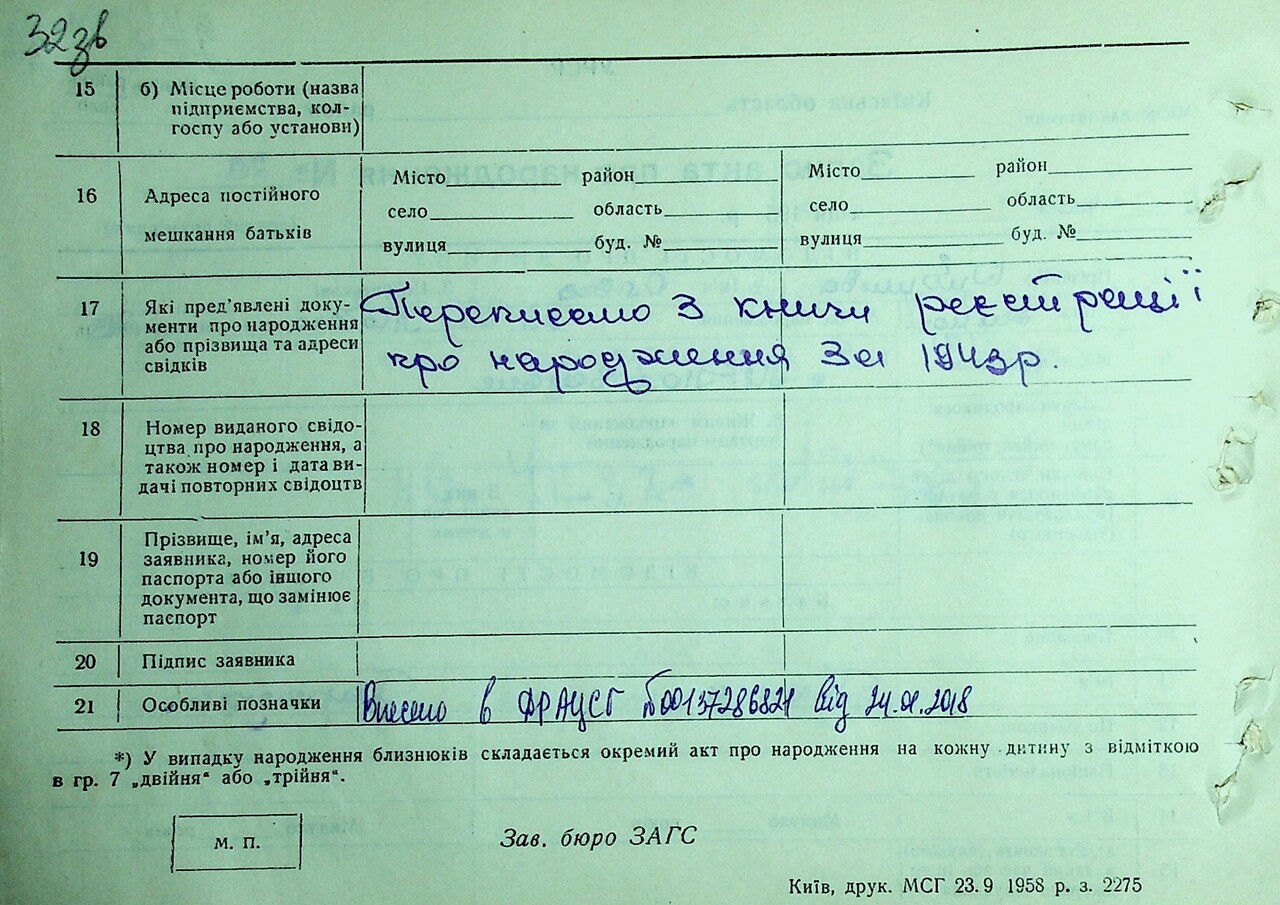 32зв
15 б) Місце роботи (назва
підприємства, кол-
госпу або установи)
16 Адреса постійного
мешкання батьків
Місто район
село область
вулиця буд. №
Місто район
село область
вулиця буд. №
17 Які пред'явлені доку-
менти про народження
або прізвища та адреси
свідків
Переписано з книги реєстрації
про народження за 1943р.
18 Номер виданого свідо-
цтва про народження, а
також номер і дата ви-
дачі повторних свідоцтв
19 Прізвище, ім'я, адреса
заявника, номер його
паспорта або іншого
документа, що замінює
паспорт
20 Підпис заявника
21 Особливі позначки
Внесено в ДРАЦСГ від 24.01.2018
*) У випадку народження близнюків складається окремий акт про народження на кожну дитину з відміткою
в гр. 7 „двійня“ або „трійня“.
м. п.
Зав. бюро ЗАГС
Київ, друк. МСГ 23.9 1958 р. з. 2275